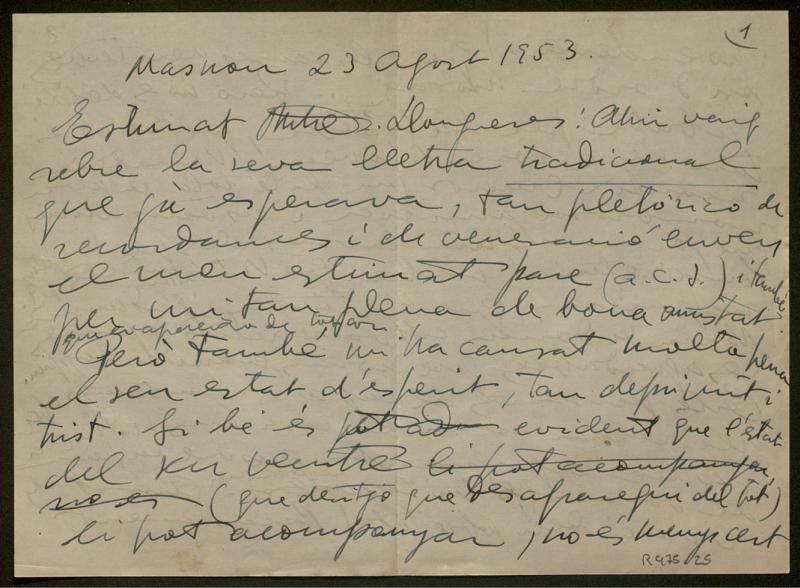 1
Masnou 23 Agost 1953.
Estimat Mtre. Llongueres: Ahir vaig
rebre la seva lletra tradicional
que ja esperava, tan pletórico de
recordances i de veneració envers
el meu estimat pare (a.c.s.) i també
per mi tan plena de bona amistat.
Però també, mi ha causat molta pena
el seu estat d'esperit, tan deprimit i
trist. Si bé és evident que l'estat
del seu ventre li pot acompanyar,
no es (que desitjo que desaparegui del tot)
li pot acompanyar, no és menys cert
R 975/25